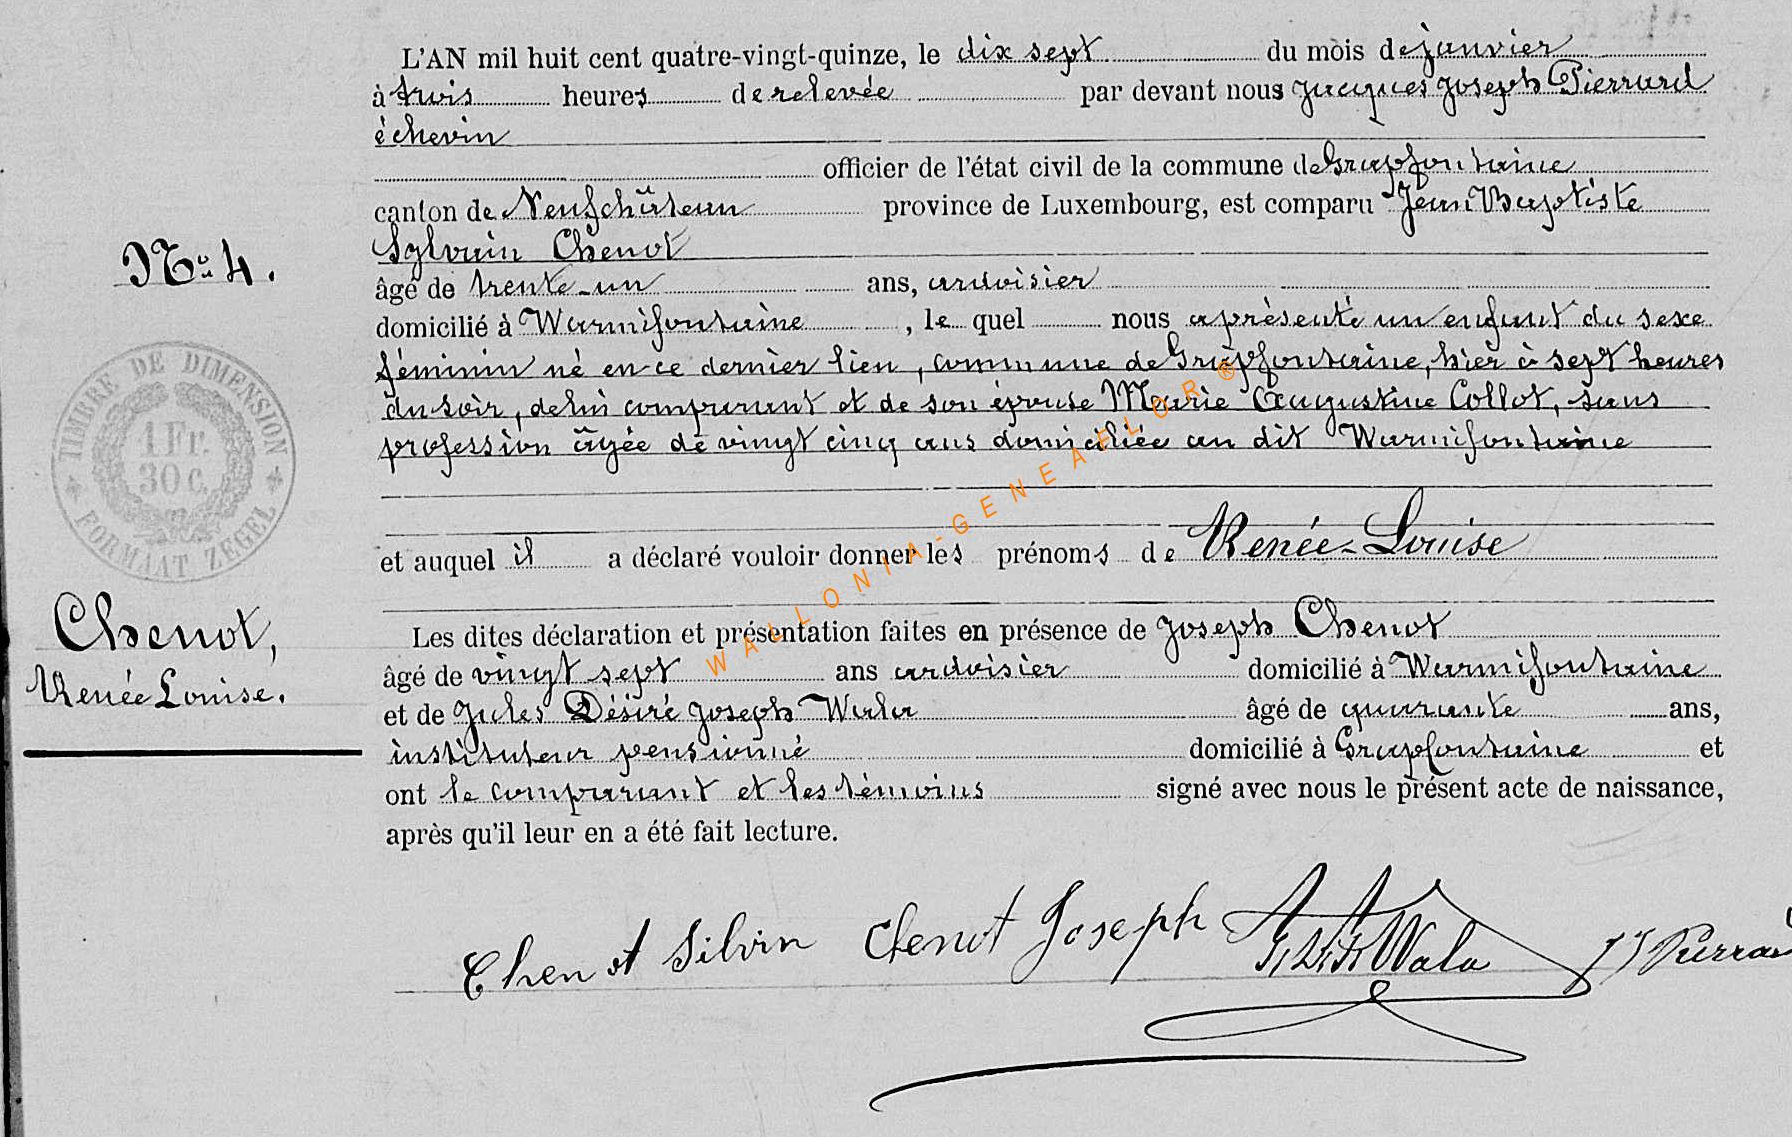 L'AN mil huit cent quatre-vingt-quinze, le dix sept du mois de janvier
à trois heures de relevée par devant nous Jacques Joseph Pierrard
échevin
officier de l'état civil de la commune de Grapfontaine
canton de Neufchâteau province de Luxembourg, est comparu Jean Baptiste
Sylvain Chenot
No. 4.
âgé de trente-un ans, ardoisier
domicilié à Warmifontaine, le quel nous a présenté un enfant du sexe
féminin né en ce dernier lieu, commune de Grapfontaine, hier à sept heures
du soir, de lui comparant et de son épouse Marie Augustine Collot, sans
profession âgée de vingt cinq ans domiciliée au dit Warmifontaine
TIMBRE DE DIMENSION
1 Fr.
30 c.
FORMAAT ZEGEL
et auquel il a déclaré vouloir donner les prénoms de Renée-Louise
Chenot,
Renée Louise.
Les dites déclaration et présentation faites en présence de Joseph Chenot
âgé de vingt sept ans ardoisier domicilié à Warmifontaine
et de Jules Désiré Joseph Wala âgé de quarante ans,
instituteur pensionné domicilié à Grapfontaine et
ont le comparant et les témoins signé avec nous le présent acte de naissance,
après qu'il leur en a été fait lecture.
Chenot Silvin Chenot Joseph J. D. J. Wala J J Pierrard
WALLONIA-GENEAFLOR®